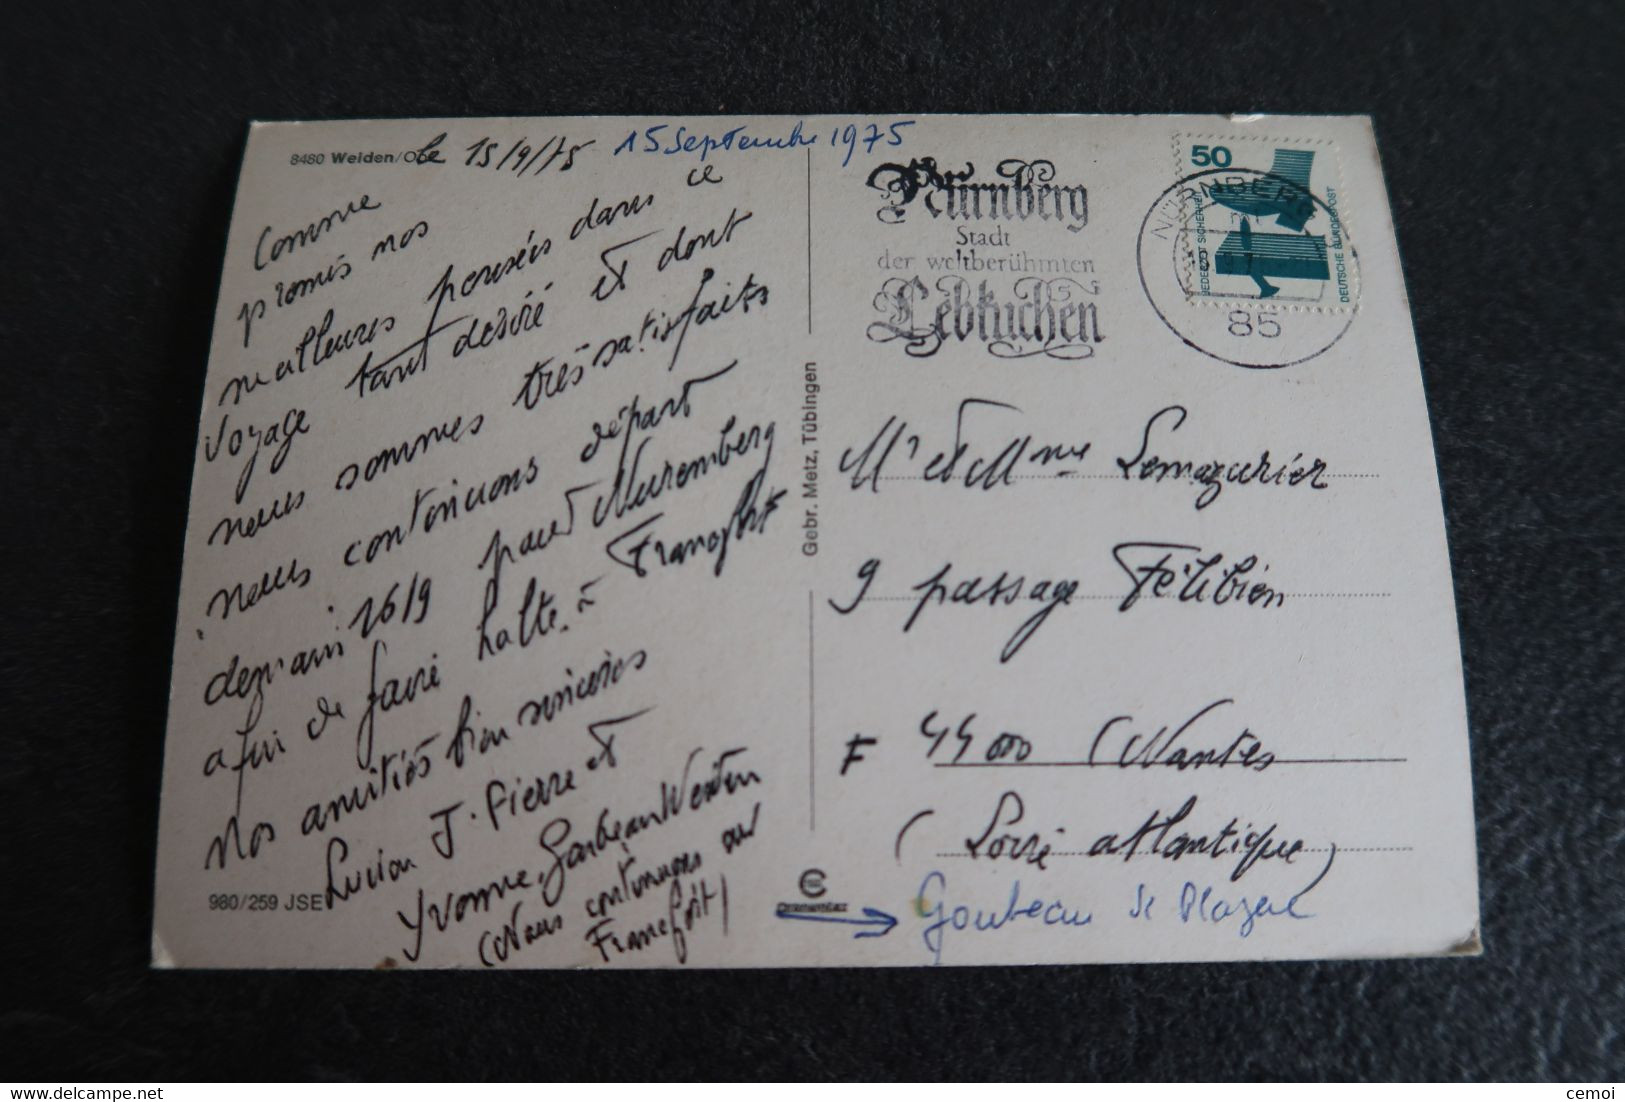 8480 Weiden/O
le 15/9/75
15 Septembre 1975
Comme
promis nos
meilleures pensées dans ce
voyage tant désiré et dont
nous sommes très satisfaits
nous continuons départ
demain 16/9 pour Nuremberg
afin de faire halte à Francfort
Nos amitiés bien sincères
Lucien J. Pierre et
Yvonne
(Nous continuons sur
Francfort)
980/259 JSE
Gebr. Metz, Tübingen
Nürnberg
Stadt
der weltberühmten
Lebkuchen
NÜRNBERG
85
50
JEDERZEIT SICHERHEIT
DEUTSCHE BUNDESPOST
Mr et Mme Lemazurier
9 passage Félibien
F 44000 (Nantes
(Loire atlantique)
Goubeau de
cemoi